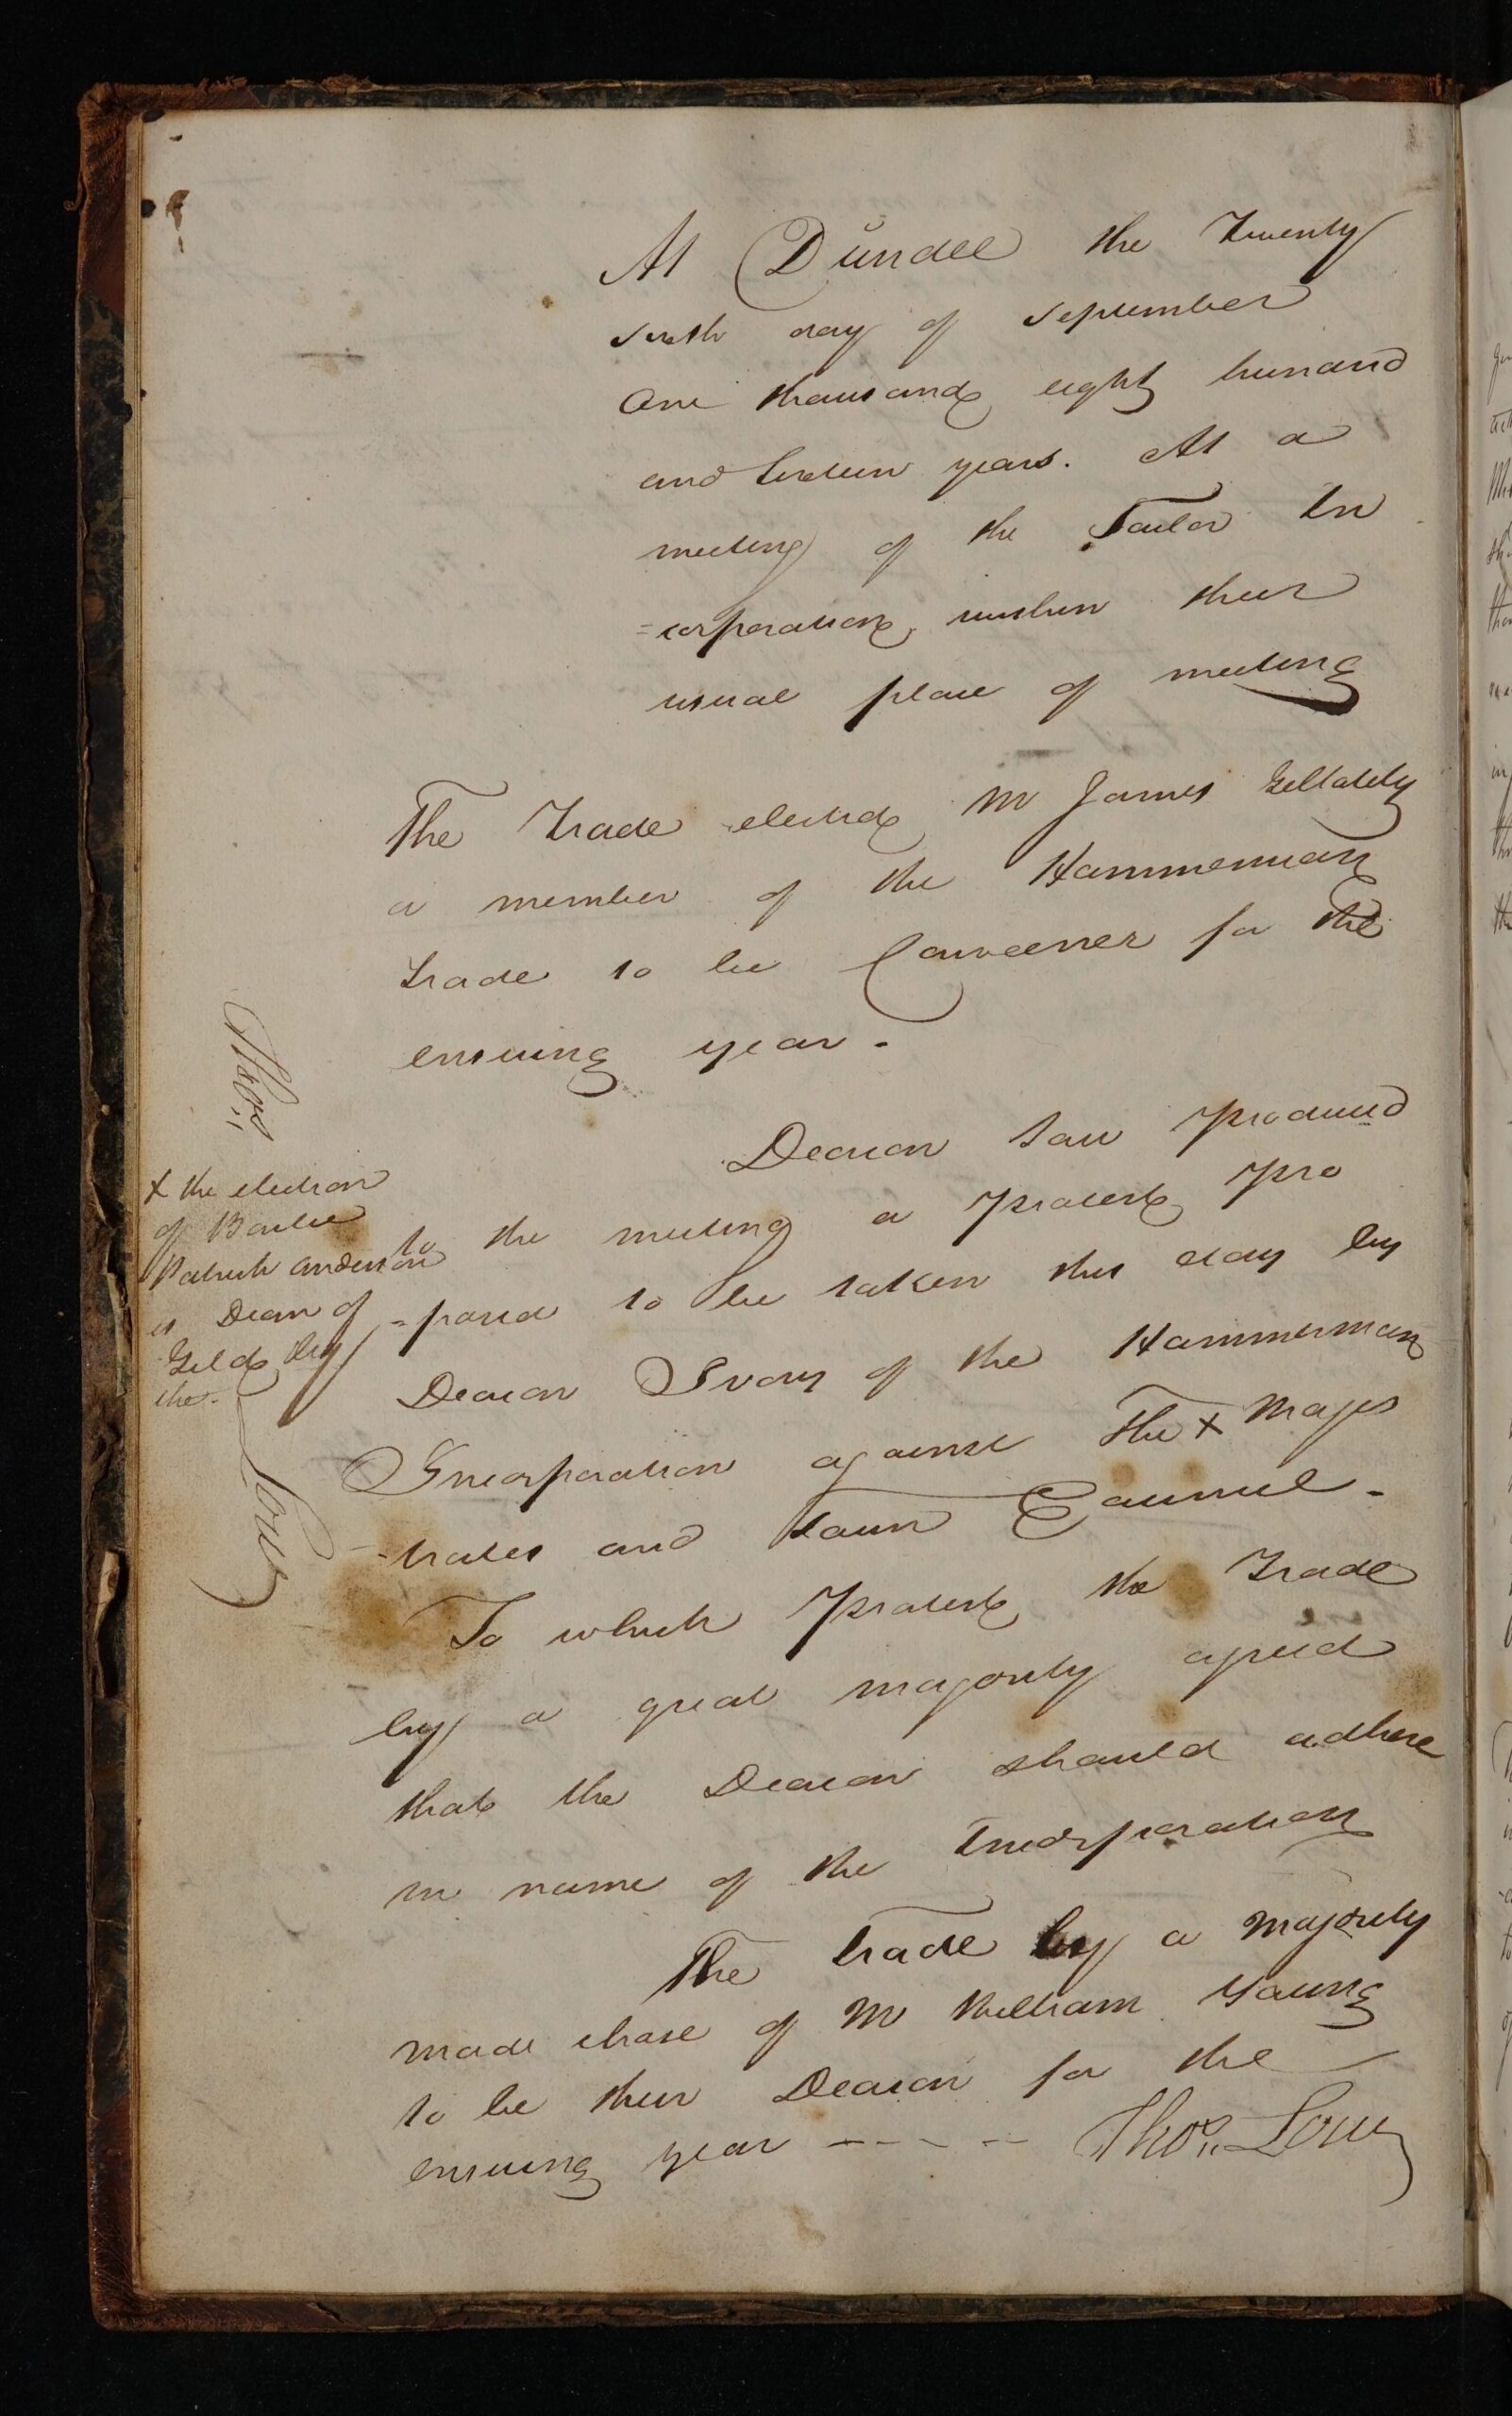 At Dundee the Twenty
sixth day of September
One thousand eight hundred
and sixteen years. At a
meeting of the Tailor In
=corporation, within their
usual place of meeting
The Trade elected Mr James Gellatly
a member of the Hammerman
trade to be Conveener for the
ensuing year.
Deacon Law produced
to the meeting a protest pro
=posed to be taken this day by
Deacon Ivory of the Hammerman
Incorporation against The x Magis
-trates and Town Council.
To which protest the Trade
by a great majority agreed
that the Deacon should adhere
in name of the Incorporation
The trade by a majority
made choise of Mr William Young
to be their Deacon for the
ensuing year ---- Thos. Low
Thos.
x the election
of Bailie
Patrick Anderson
as Dean of
Gild by
the.
Low